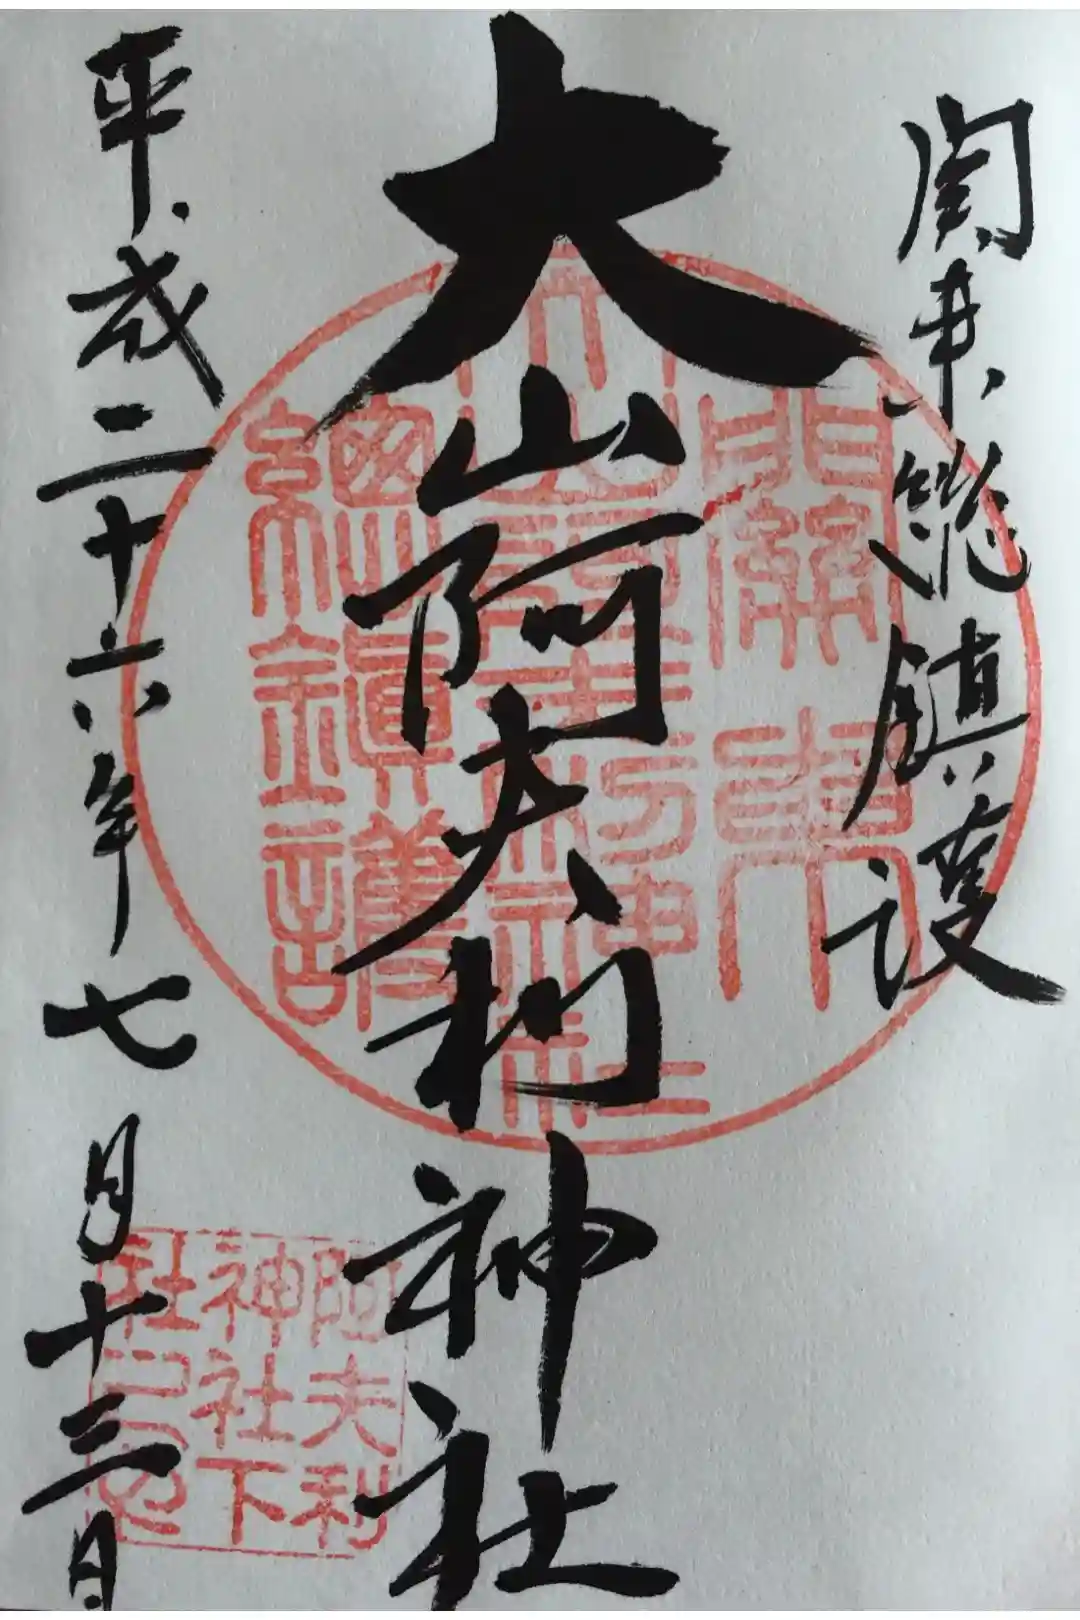 関東総鎮護
大山阿夫利神社
平成二十六年七月十三日
關東
総鎮護
阿夫利
神社下
社之印